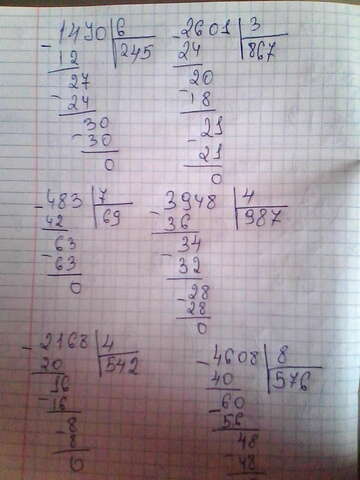 1470 6
- 12 245
27
- 24
30
- 30
0
2601 3
- 24 867
20
- 18
21
- 21
0
483 7
- 42 69
63
- 63
0
3948 4
- 36 987
34
- 32
28
- 28
0
2168 4
- 20 542
16
- 16
8
- 8
0
4608 8
- 40 576
60
- 56
48
- 48